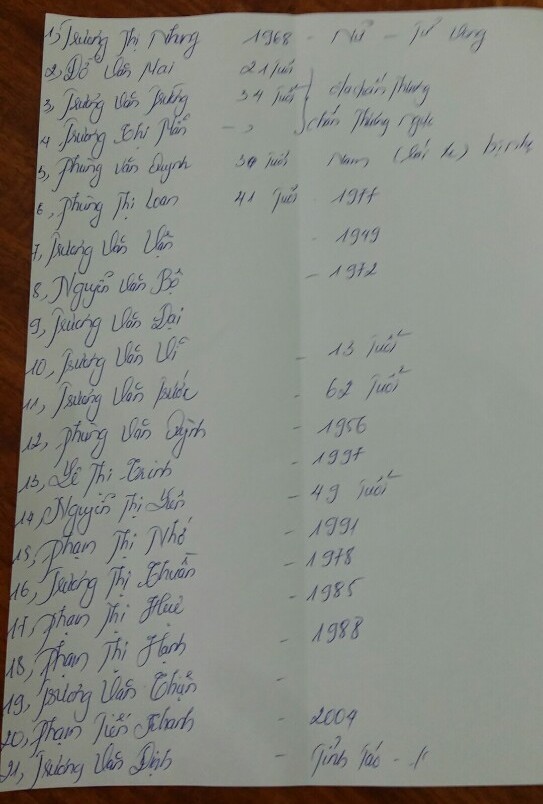 1, Trương Thị Nhung 1968 - Nữ - Tử vong
2, Đỗ Văn Mai 21 tuổi
3, Trương Văn Trường 34 tuổi } đa chấn thương
4 Trương Thị Mẫn - } chấn thương ngực
5, Phùng Văn Quỳnh 39 tuổi Nam (lái xe)
6, Phùng Thị Loan 41 tuổi - 1977
7, Trương Văn Vận - 1949
8, Nguyễn Văn Bộ - 1972
9, Trương Văn Đại
10, Trương Văn Vĩ - 13 tuổi
11, Trương Văn Trước - 62 tuổi
12, Phùng Văn Quỳnh - 1956
13, Lê Thị Trinh - 1997
14, Nguyễn Thị Yên - 49 tuổi
15, Phạm Thị Nhớ - 1991
16, Trương Thị Thuần - 1978
17, Phạm Thị Huê - 1985
18, Phạm Thị Hạnh - 1988
19, Trương Văn Thận -
20, Phạm Tiến Thanh - 2004
21, Trương Văn Định - Tỉnh táo -